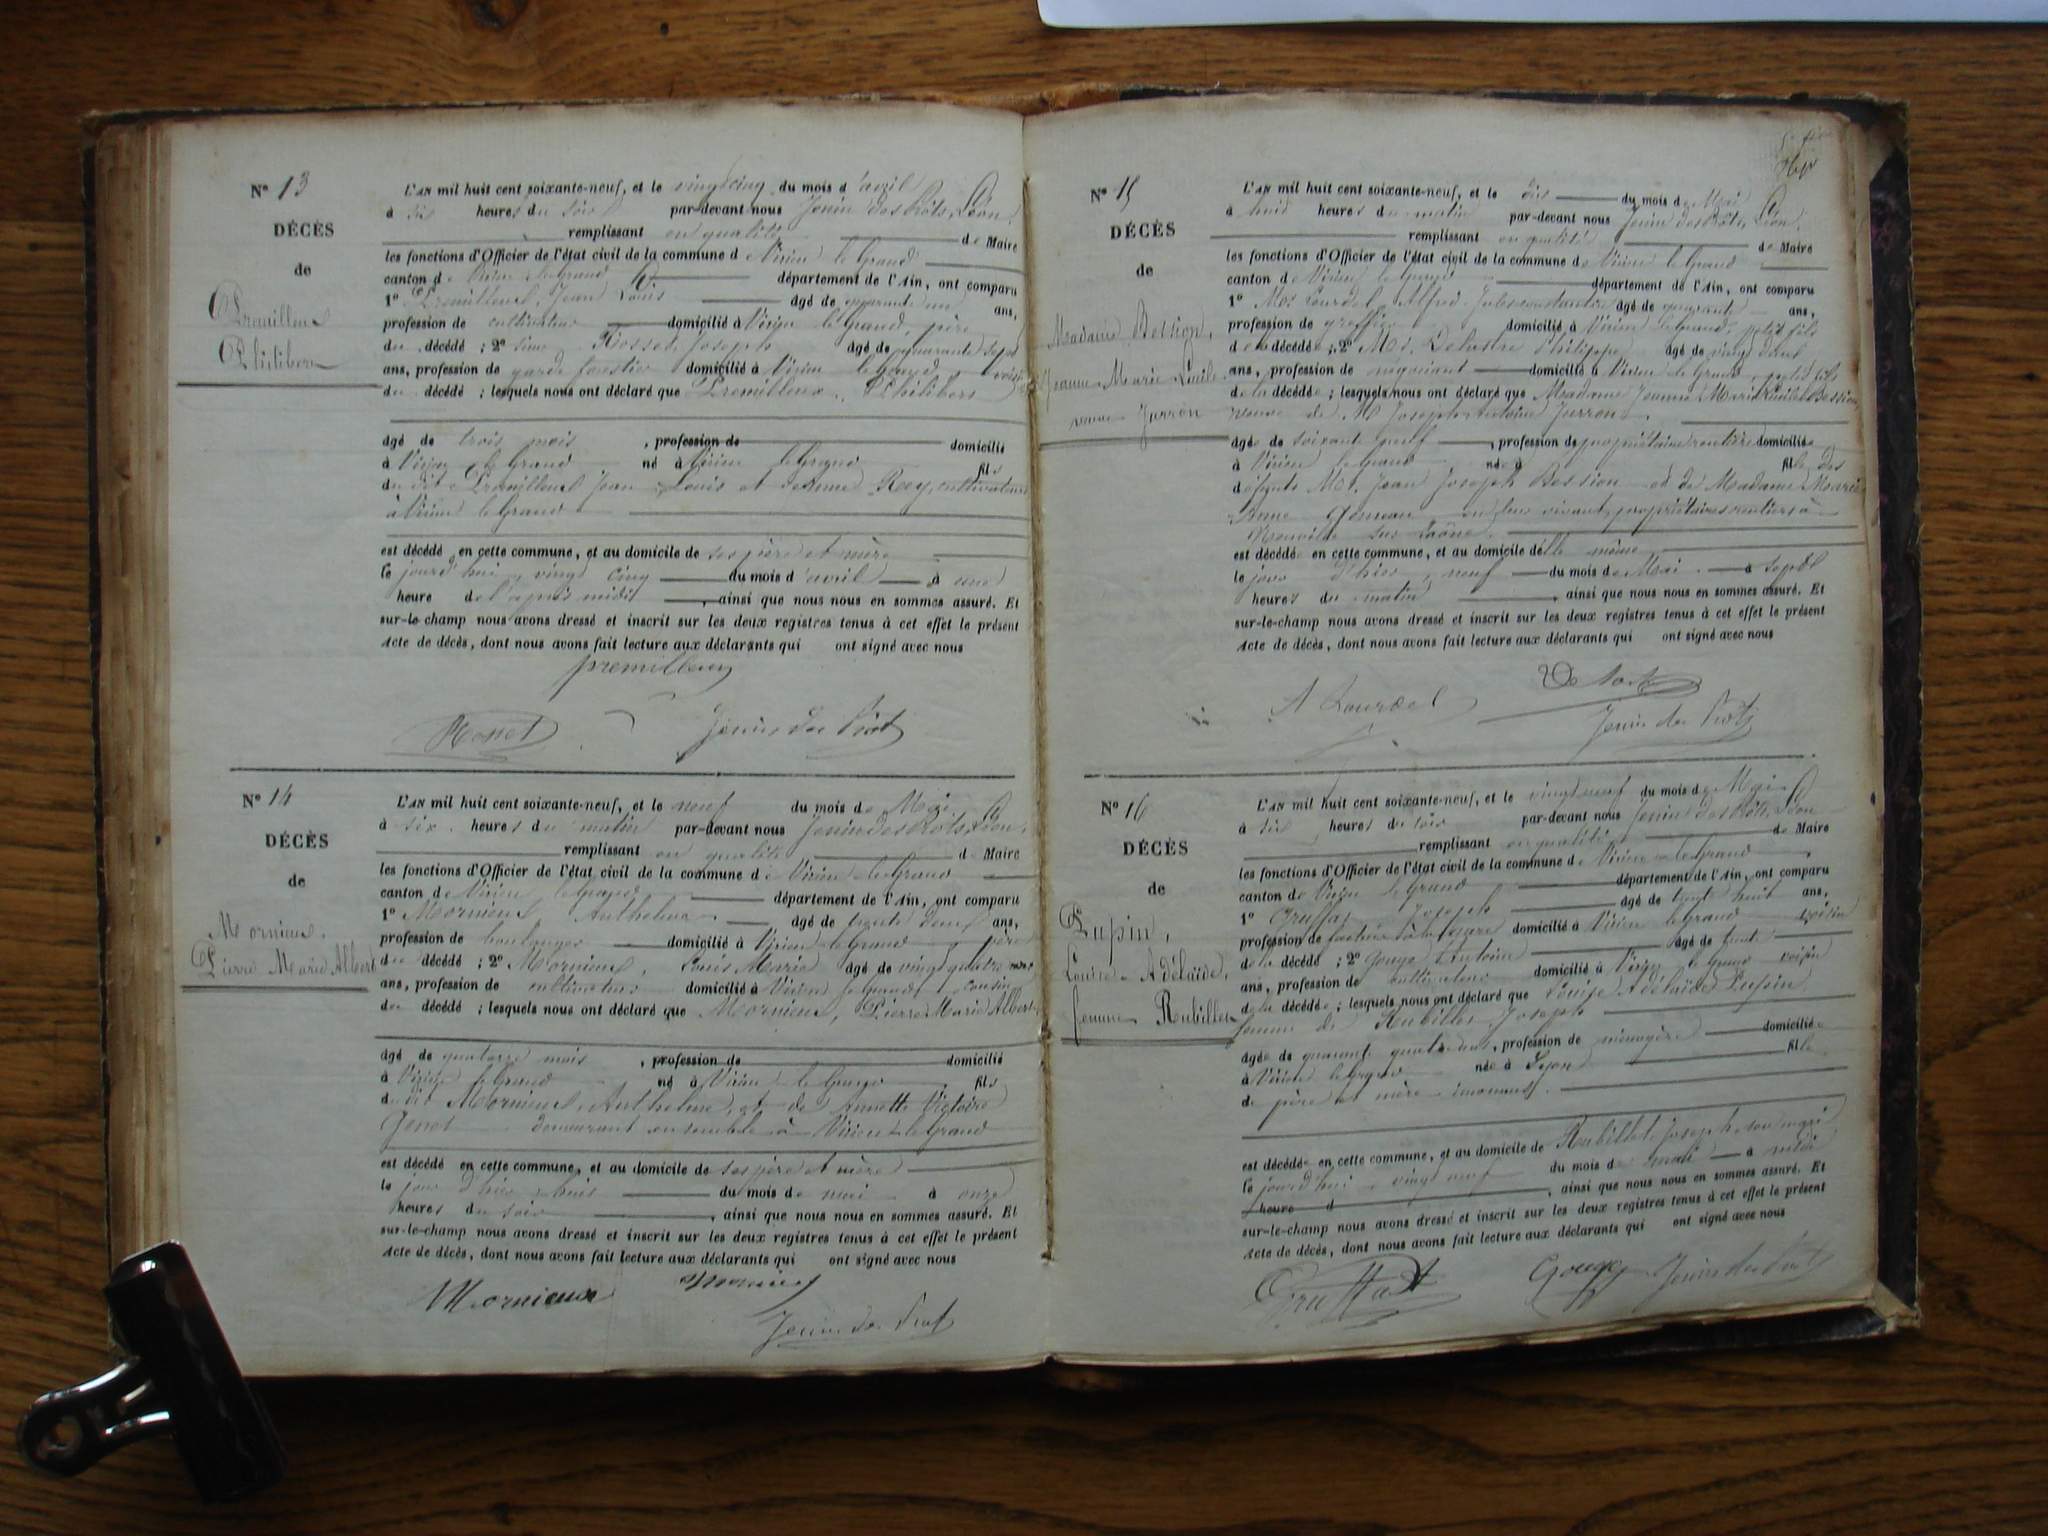 Nº 13
DÉCÈS
de
Premilleux
Philibert
L'AN mil huit cent soixante-neuf, et le vingt cinq du mois d'avril
à six heures du soir par-devant nous Jenin des Prôts, Léon,
remplissant en qualité de Maire
les fonctions d'Officier de l'état civil de la commune de Virieu le Grand
canton de Virieu le Grand département de l'Ain, ont comparu
1º Premilleux, Jean Louis âgé de quarante un ans,
profession de cultivateur domicilié à Virieu le Grand, père
du décédé ; 2º Rosset, Joseph âgé de quarante sept
ans, profession de garde forestier domicilié à Virieu le Grand, voisin
du décédé ; lesquels nous ont déclaré que Premilleux, Philibert
âgé de trois mois, profession de domicilié
à Virieu le Grand né à Virieu le Grand fils
du dit Premilleux Jean Louis et de Jeanne Rey, cultivateurs
à Virieu le Grand
est décédé en cette commune, et au domicile de ses père et mère
le jourd'hui, vingt cinq du mois d'avril à une
heure de l'après midi, ainsi que nous nous en sommes assuré. Et
sur-le-champ nous avons dressé et inscrit sur les deux registres tenus à cet effet le présent
Acte de décès, dont nous avons fait lecture aux déclarants qui ont signé avec nous
premilleux
Rosset Jenin des Prôts
Nº 14
DÉCÈS
de
Mornieux,
Pierre Marie Albert
L'AN mil huit cent soixante-neuf, et le neuf du mois de Mai
à six heures du matin par-devant nous Jenin des Prôts, Léon,
remplissant en qualité de Maire
les fonctions d'Officier de l'état civil de la commune de Virieu le Grand
canton de Virieu le Grand département de l'Ain, ont comparu
1º Mornieux, Anthelme âgé de trente deux ans,
profession de boulanger domicilié à Virieu le Grand père
du décédé ; 2º Mornieux, Louis Marie âgé de vingt quatre
ans, profession de cultivateur domicilié à Virieu le Grand, cousin
du décédé ; lesquels nous ont déclaré que Mornieux, Pierre Marie Albert
âgé de quatorze mois, profession de domicilié
à Virieu le Grand né à Virieu le Grand fils
du dit Mornieux, Anthelme, et de Annette Victoire
Genet demeurant ensemble à Virieu le Grand
est décédé en cette commune, et au domicile de ses père et mère
le jour d'hier huit du mois de mai à onze
heures du soir, ainsi que nous nous en sommes assuré. Et
sur-le-champ nous avons dressé et inscrit sur les deux registres tenus à cet effet le présent
Acte de décès, dont nous avons fait lecture aux déclarants qui ont signé avec nous
Mornieux Mornieux
Jenin des Prôts
Nº 15
DÉCÈS
de
Madame Bession,
Jeanne Marie Lucile
veuve Jurron
L'AN mil huit cent soixante-neuf, et le dix du mois de Mai
à huit heures du matin par-devant nous Jenin des Prôts, Léon,
remplissant en qualité de Maire
les fonctions d'Officier de l'état civil de la commune de Virieu le Grand
canton de Virieu le Grand département de l'Ain, ont comparu
1º Mr Lourdel, Alfred Jules Constantin âgé de quarante ans,
profession de greffier domicilié à Virieu le Grand, petit fils
de la décédée ; 2º Mr. Philippe âgé de vingt deux
ans, profession de négociant domicilié à Virieu le Grand, petit fils
de la décédée ; lesquels nous ont déclaré que Madame Jeanne Marie Lucile Bession,
veuve de M Joseph Antoine Jurron
âgée de soixante neuf, profession de propriétaire rentière domiciliée
à Virieu le Grand née à fille des
défunts Mr. Jean Joseph Bession et de Madame Marie
Anne en leur vivant propriétaires rentiers à
Neuville sur Saône
est décédée en cette commune, et au domicile d'elle même
le jour d'hier, neuf du mois de Mai à sept
heures du matin, ainsi que nous nous en sommes assuré. Et
sur-le-champ nous avons dressé et inscrit sur les deux registres tenus à cet effet le présent
Acte de décès, dont nous avons fait lecture aux déclarants qui ont signé avec nous
A Lourdel
Jenin des Prôts
Nº 16
DÉCÈS
de
Pupin,
Louise Adélaïde,
femme Rubillet
L'AN mil huit cent soixante-neuf, et le vingt neuf du mois de Mai
à six heures du soir par-devant nous Jenin des Prôts, Léon
remplissant en qualité de Maire
les fonctions d'Officier de l'état civil de la commune de Virieu le Grand
canton de Virieu le Grand département de l'Ain, ont comparu
1º Gruffat Joseph âgé de trente huit ans,
profession de facteur à la gare domicilié à Virieu le Grand voisin
de la décédée ; 2º Gouge Antoine âgé de trente
ans, profession de cultivateur domicilié à Virieu le Grand voisin
de la décédée ; lesquels nous ont déclaré que Louise Adélaïde Pupin,
femme de Rubillet Joseph
âgée de quarante quatre ans, profession de ménagère domiciliée
à Virieu le Grand née à Lyon fille
de père et mère inconnus
est décédée en cette commune, et au domicile de Rubillet Joseph, son mari
le jourd'hui vingt neuf du mois de mai à midi
heure d, ainsi que nous nous en sommes assuré. Et
sur-le-champ nous avons dressé et inscrit sur les deux registres tenus à cet effet le présent
Acte de décès, dont nous avons fait lecture aux déclarants qui ont signé avec nous
Gruffat Gouge Jenin des Prôts